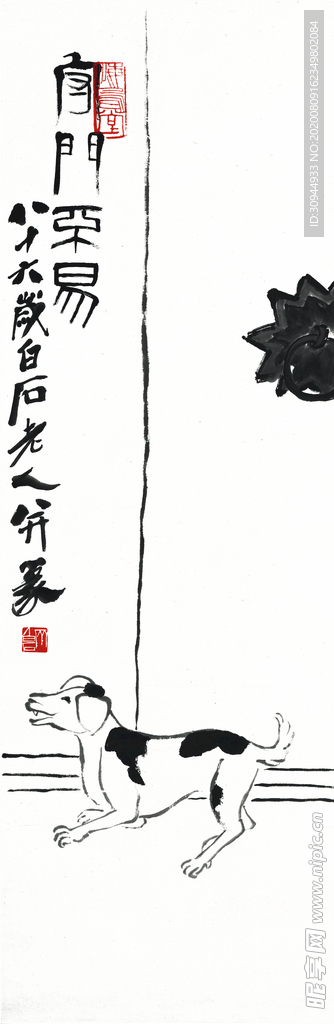 守門不易
八十六歲白石老人并篆
ID:30944933 NO:20200809162349802084
昵享网 www.nipic.cn